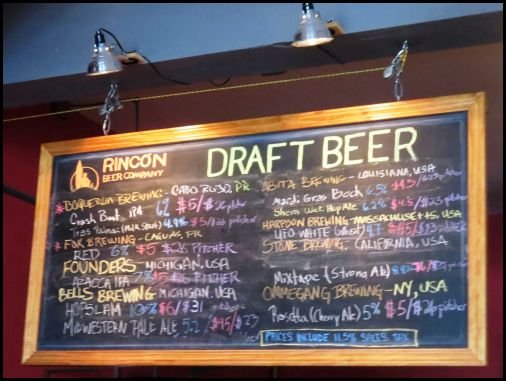 RINCÓN
BEER COMPANY
DRAFT BEER
* BOQUERON BREWING - CABO ROJO, PR
Crash Boat IPA 6.2 $5/$26 pitcher
Tres Palmas (Milk Stout) $5/$26 pitcher
* FOK BREWING - CAGUAS, PR
RED 6% $5 $26 PITCHER
FOUNDERS - MICHIGAN, USA
AZACCA IPA 7% $5 $26 PITCHER
BELLS BREWING MICHIGAN, USA
HOPSLAM 10% $6/$31
MIDWESTERN PALE ALE 5.2 $4.5/$23
ABITA BREWING - LOUISIANA, USA
Mardi Gras Bock 6.5% $4.5/$23 pitcher
Wet Hop Ale 6.2% $4.5/$23 pitcher
HARPOON BREWING - MASSACHUSETTS, USA
UFO WHITE (Wheat) $4.5/$23 pitcher
STONE BREWING, CALIFORNIA, USA
Mixtape (Strong Ale)
OMMEGANG BREWING - NY, USA
Rosetta (Cherry Ale) 5% $5/$26 pitcher
PRICES INCLUDE 11.5% SALES TAX